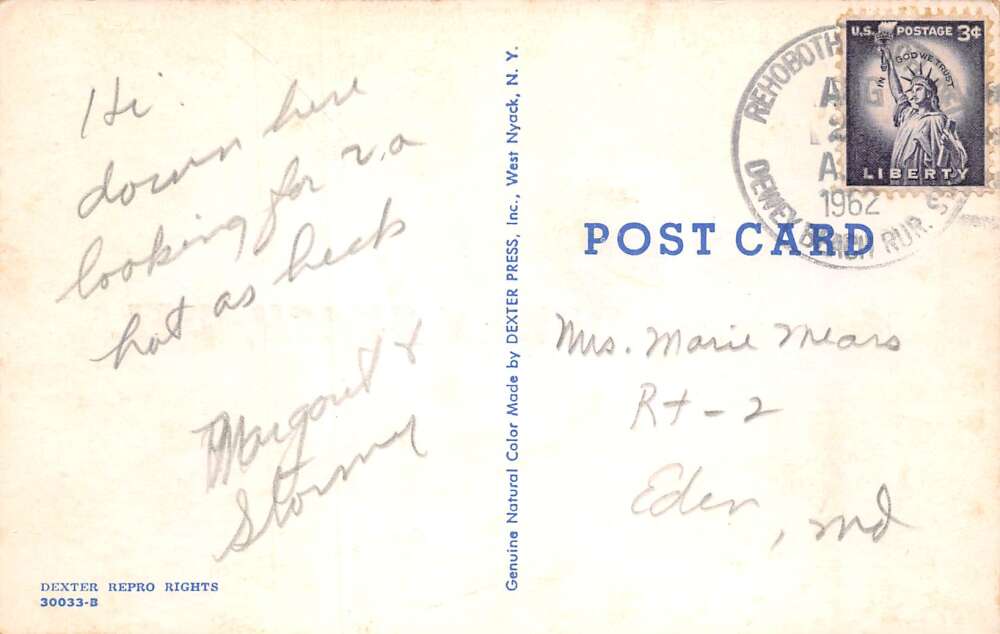 Hi
down here
looking for v.a
hot as heck
Margaret &
Stormy
DEXTER REPRO RIGHTS
30033-B
Genuine Natural Color Made by DEXTER PRESS, Inc., West Nyack, N. Y.
U.S. POSTAGE 3¢
IN GOD WE TRUST
LIBERTY
REHOBOTH
A
1962
DEWEY BEACH RUR. S
POST CARD
Mrs. Marie Mears
Rt-2
Eden, Md